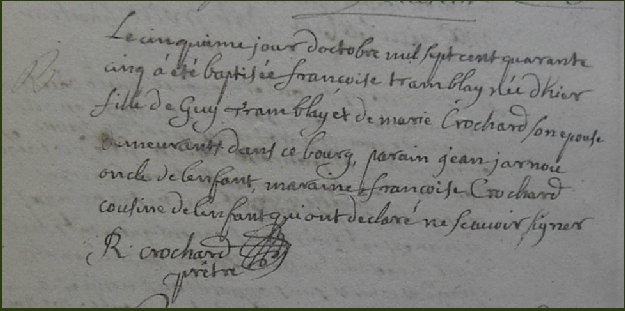 Le cinquiême jour doctobre mil sept cent quarante
cinq á été baptisée francoise tramblay née d'hier
fille de Guy Tramblay et de marie Crochard son epouse
demeurants dans ce bourg, parain jean jarnou
oncle de lenfant, maraine francoise Crochard
cousine de lenfant qui ont declaré ne scavoir signer
R. crochard
prêtre